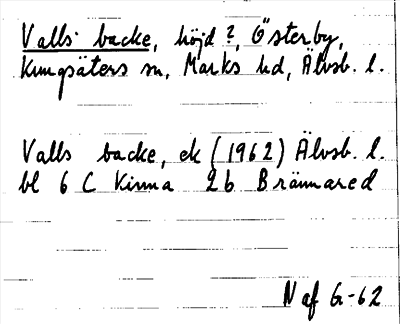 Valls backe, höjd?, Österby,
Kungsäters sn, Marks hd, Älvsb. l.
Valls backe, ek (1962) Älvsb. l.
bl 6 C Kinna 2b Brännared
N af G-62